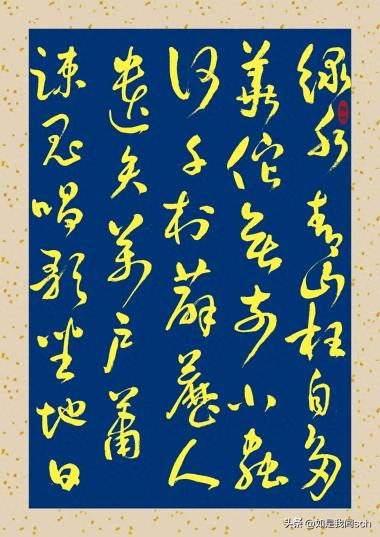 绿水青山枉自多
華佗無奈小蟲
何千村薜藶人
遺矢萬户蕭
疎鬼唱歌坐地日
头条 @如是我闻sch